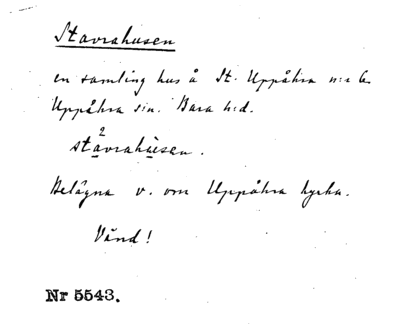 Stavrahusen
en samling hus å St. Uppåkra n:r 6
Uppåkra s:n. Bara h:d.
2
stavrahùsen.
Belägna v. om Uppåkra kyrka.
Vänd!
Nr 5543.